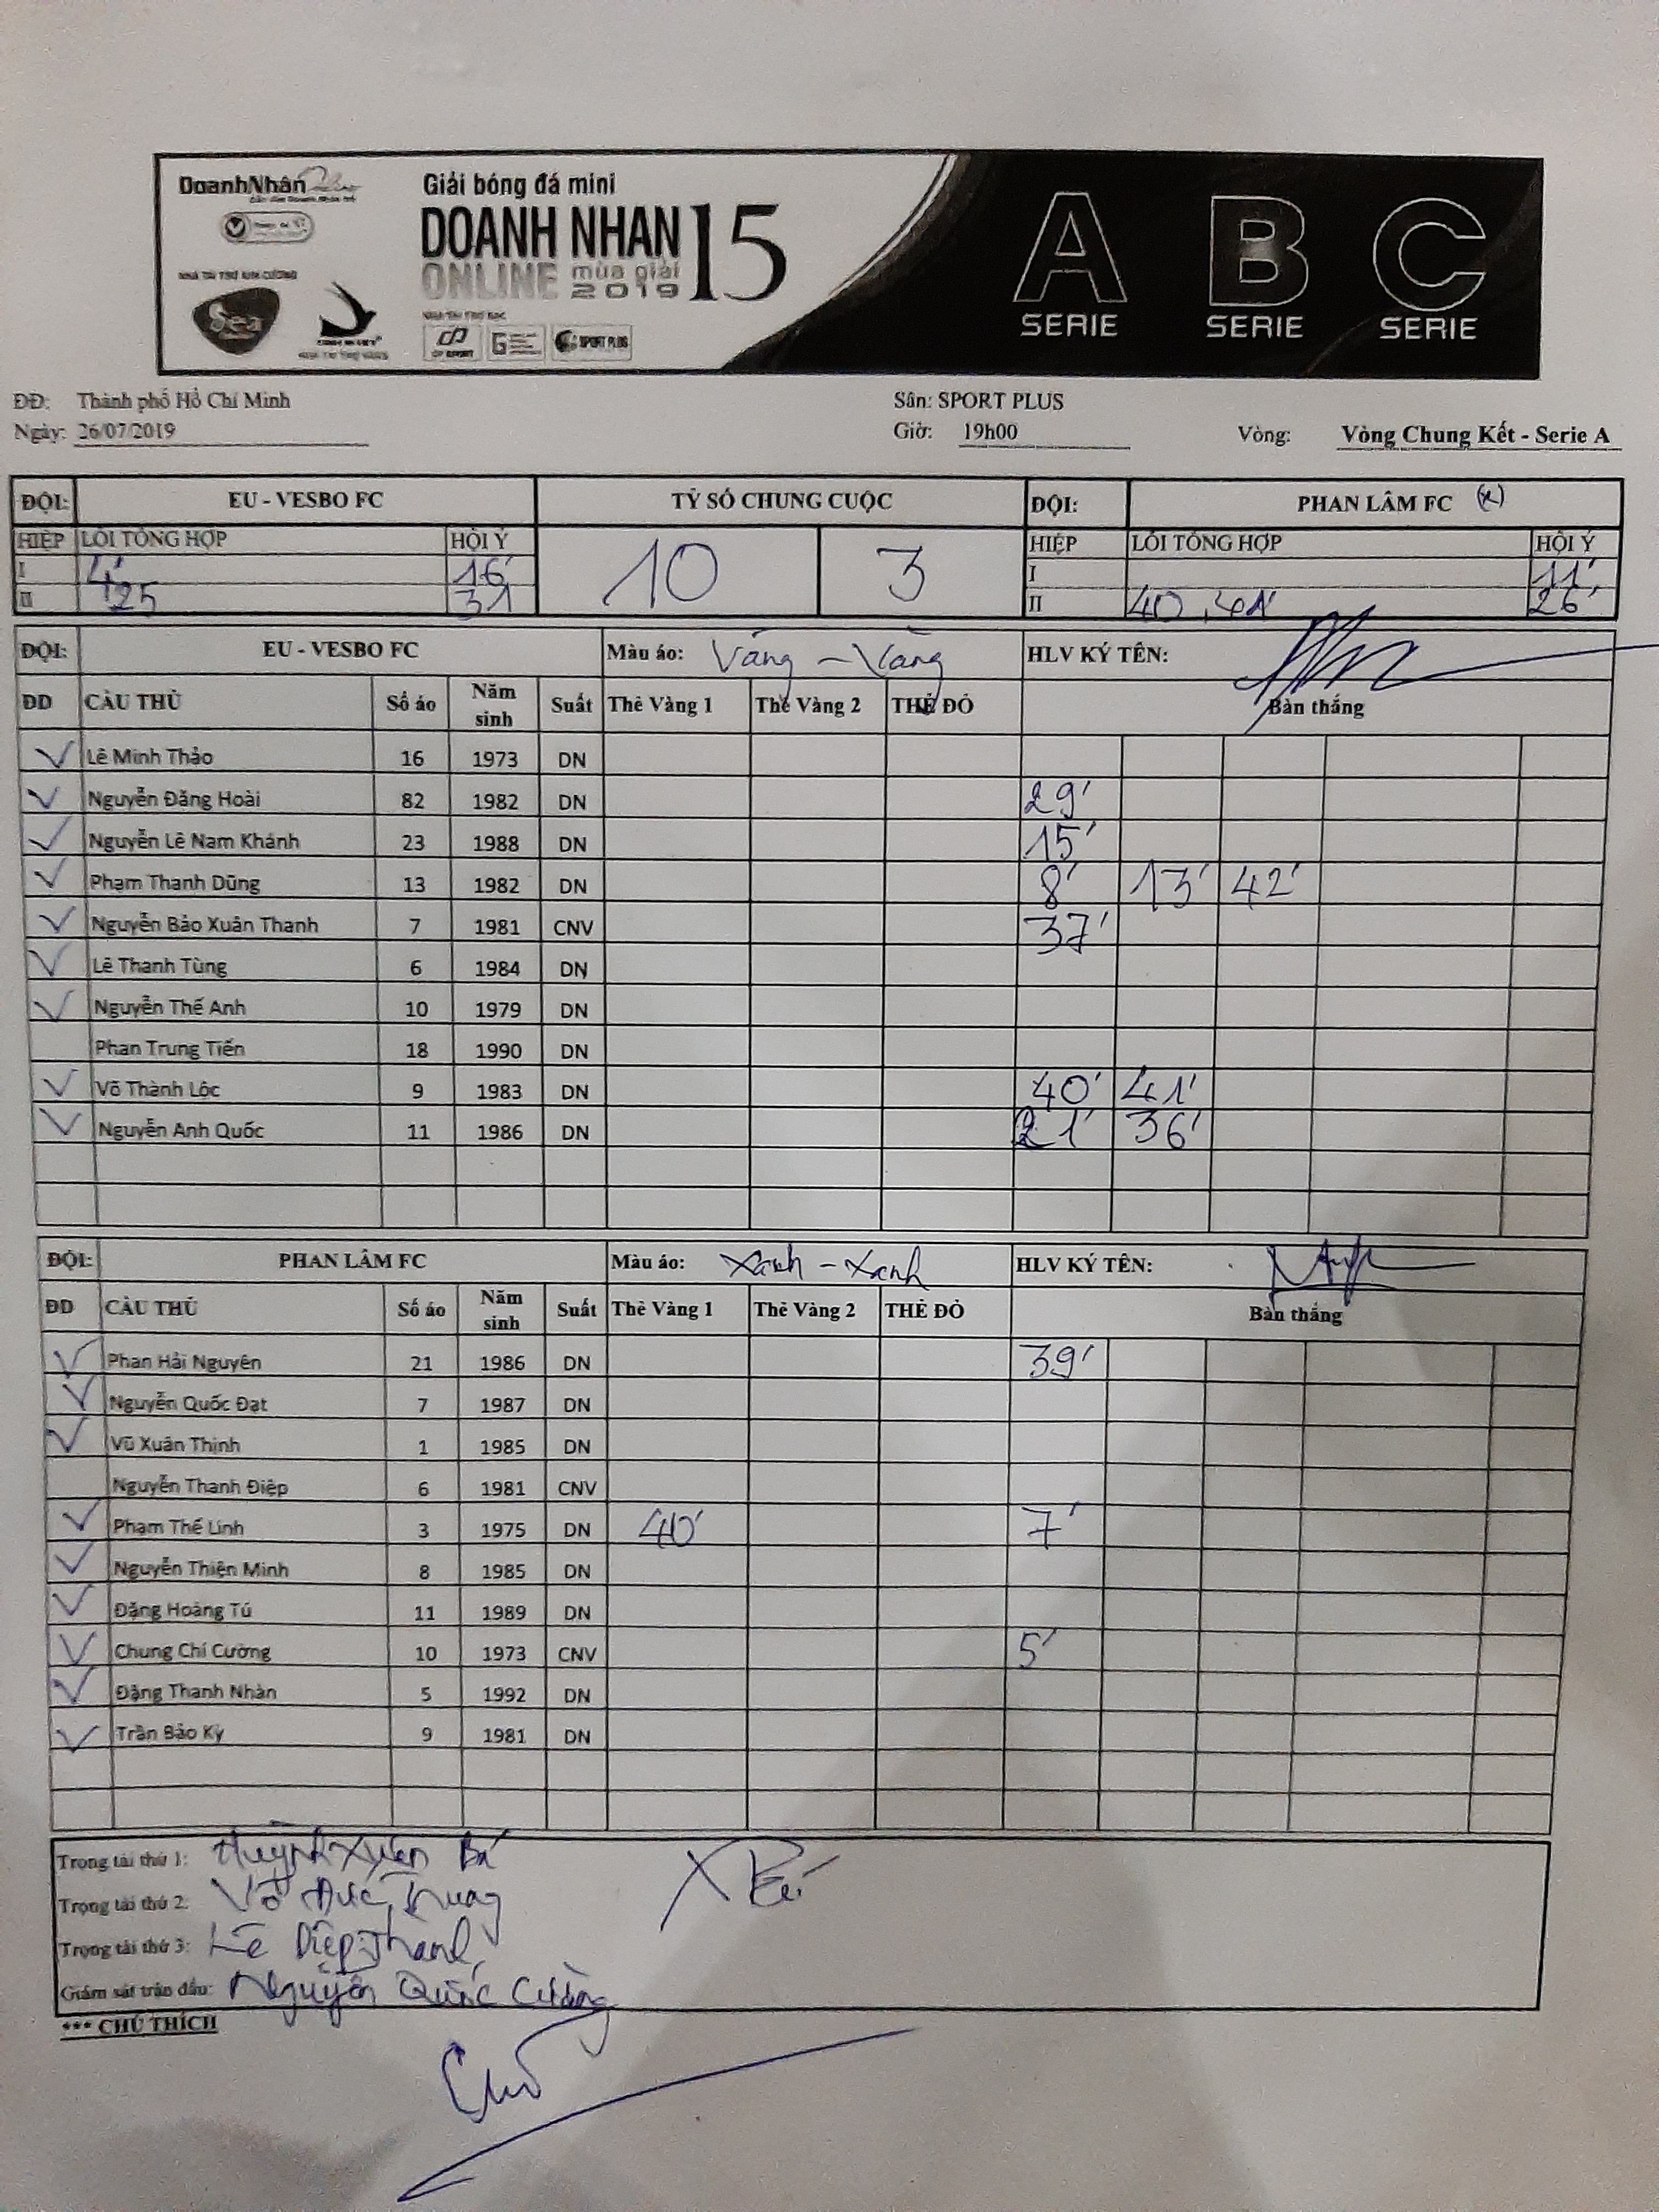 DoanhNhân
Giải bóng đá mini
DOANH NHAN 15
ONLINE mùa giải 2019
NHÀ TÀI TRỢ KIM CƯƠNG
Sea
SPORT PLUS
A SERIE
B SERIE
C SERIE
ĐĐ: Thành phố Hồ Chí Minh
Sân: SPORT PLUS
Ngày: 26/07/2019
Giờ: 19h00
Vòng: Vòng Chung Kết - Serie A
ĐỘI: EU - VESBO FC TỶ SỐ CHUNG CUỘC ĐỘI: PHAN LÂM FC (x)
HIỆP LỖI TỔNG HỢP HỘI Ý 10 3 HIỆP LỖI TỔNG HỢP HỘI Ý
I 4' 16' I 11'
II 25 31 II 40, 41' 26'
ĐỘI: EU - VESBO FC Màu áo: Vàng - Vàng HLV KÝ TÊN:
ĐD CẦU THỦ Số áo Năm sinh Suất Thẻ Vàng 1 Thẻ Vàng 2 THẺ ĐỎ Bàn thắng
Lê Minh Thảo 16 1973 DN
Nguyễn Đăng Hoài 82 1982 DN 29'
Nguyễn Lê Nam Khánh 23 1988 DN 15'
Phạm Thanh Dũng 13 1982 DN 8' 13' 42'
Nguyễn Bảo Xuân Thanh 7 1981 CNV 37'
Lê Thanh Tùng 6 1984 DN
Nguyễn Thế Anh 10 1979 DN
Phan Trung Tiến 18 1990 DN
Võ Thành Lộc 9 1983 DN 40' 41'
Nguyễn Anh Quốc 11 1986 DN 21' 36'
ĐỘI: PHAN LÂM FC Màu áo: Xanh - Xanh HLV KÝ TÊN:
ĐD CẦU THỦ Số áo Năm sinh Suất Thẻ Vàng 1 Thẻ Vàng 2 THẺ ĐỎ Bàn thắng
Phan Hải Nguyên 21 1986 DN 39'
Nguyễn Quốc Đạt 7 1987 DN
Vũ Xuân Thịnh 1 1985 DN
Nguyễn Thanh Điệp 6 1981 CNV
Phạm Thế Linh 3 1975 DN 40' 7'
Nguyễn Thiện Minh 8 1985 DN
Đặng Hoàng Tú 11 1989 DN
Chung Chí Cường 10 1973 CNV 5'
Đặng Thanh Nhàn 5 1992 DN
Trần Bảo Kỳ 9 1981 DN
Trọng tài thứ 1: Huỳnh Xuân Bá
Trọng tài thứ 2: Võ Đức Trung
Trọng tài thứ 3: Lê Diệp Thành
Giám sát trận đấu: Nguyễn Quốc Cường
*** CHÚ THÍCH